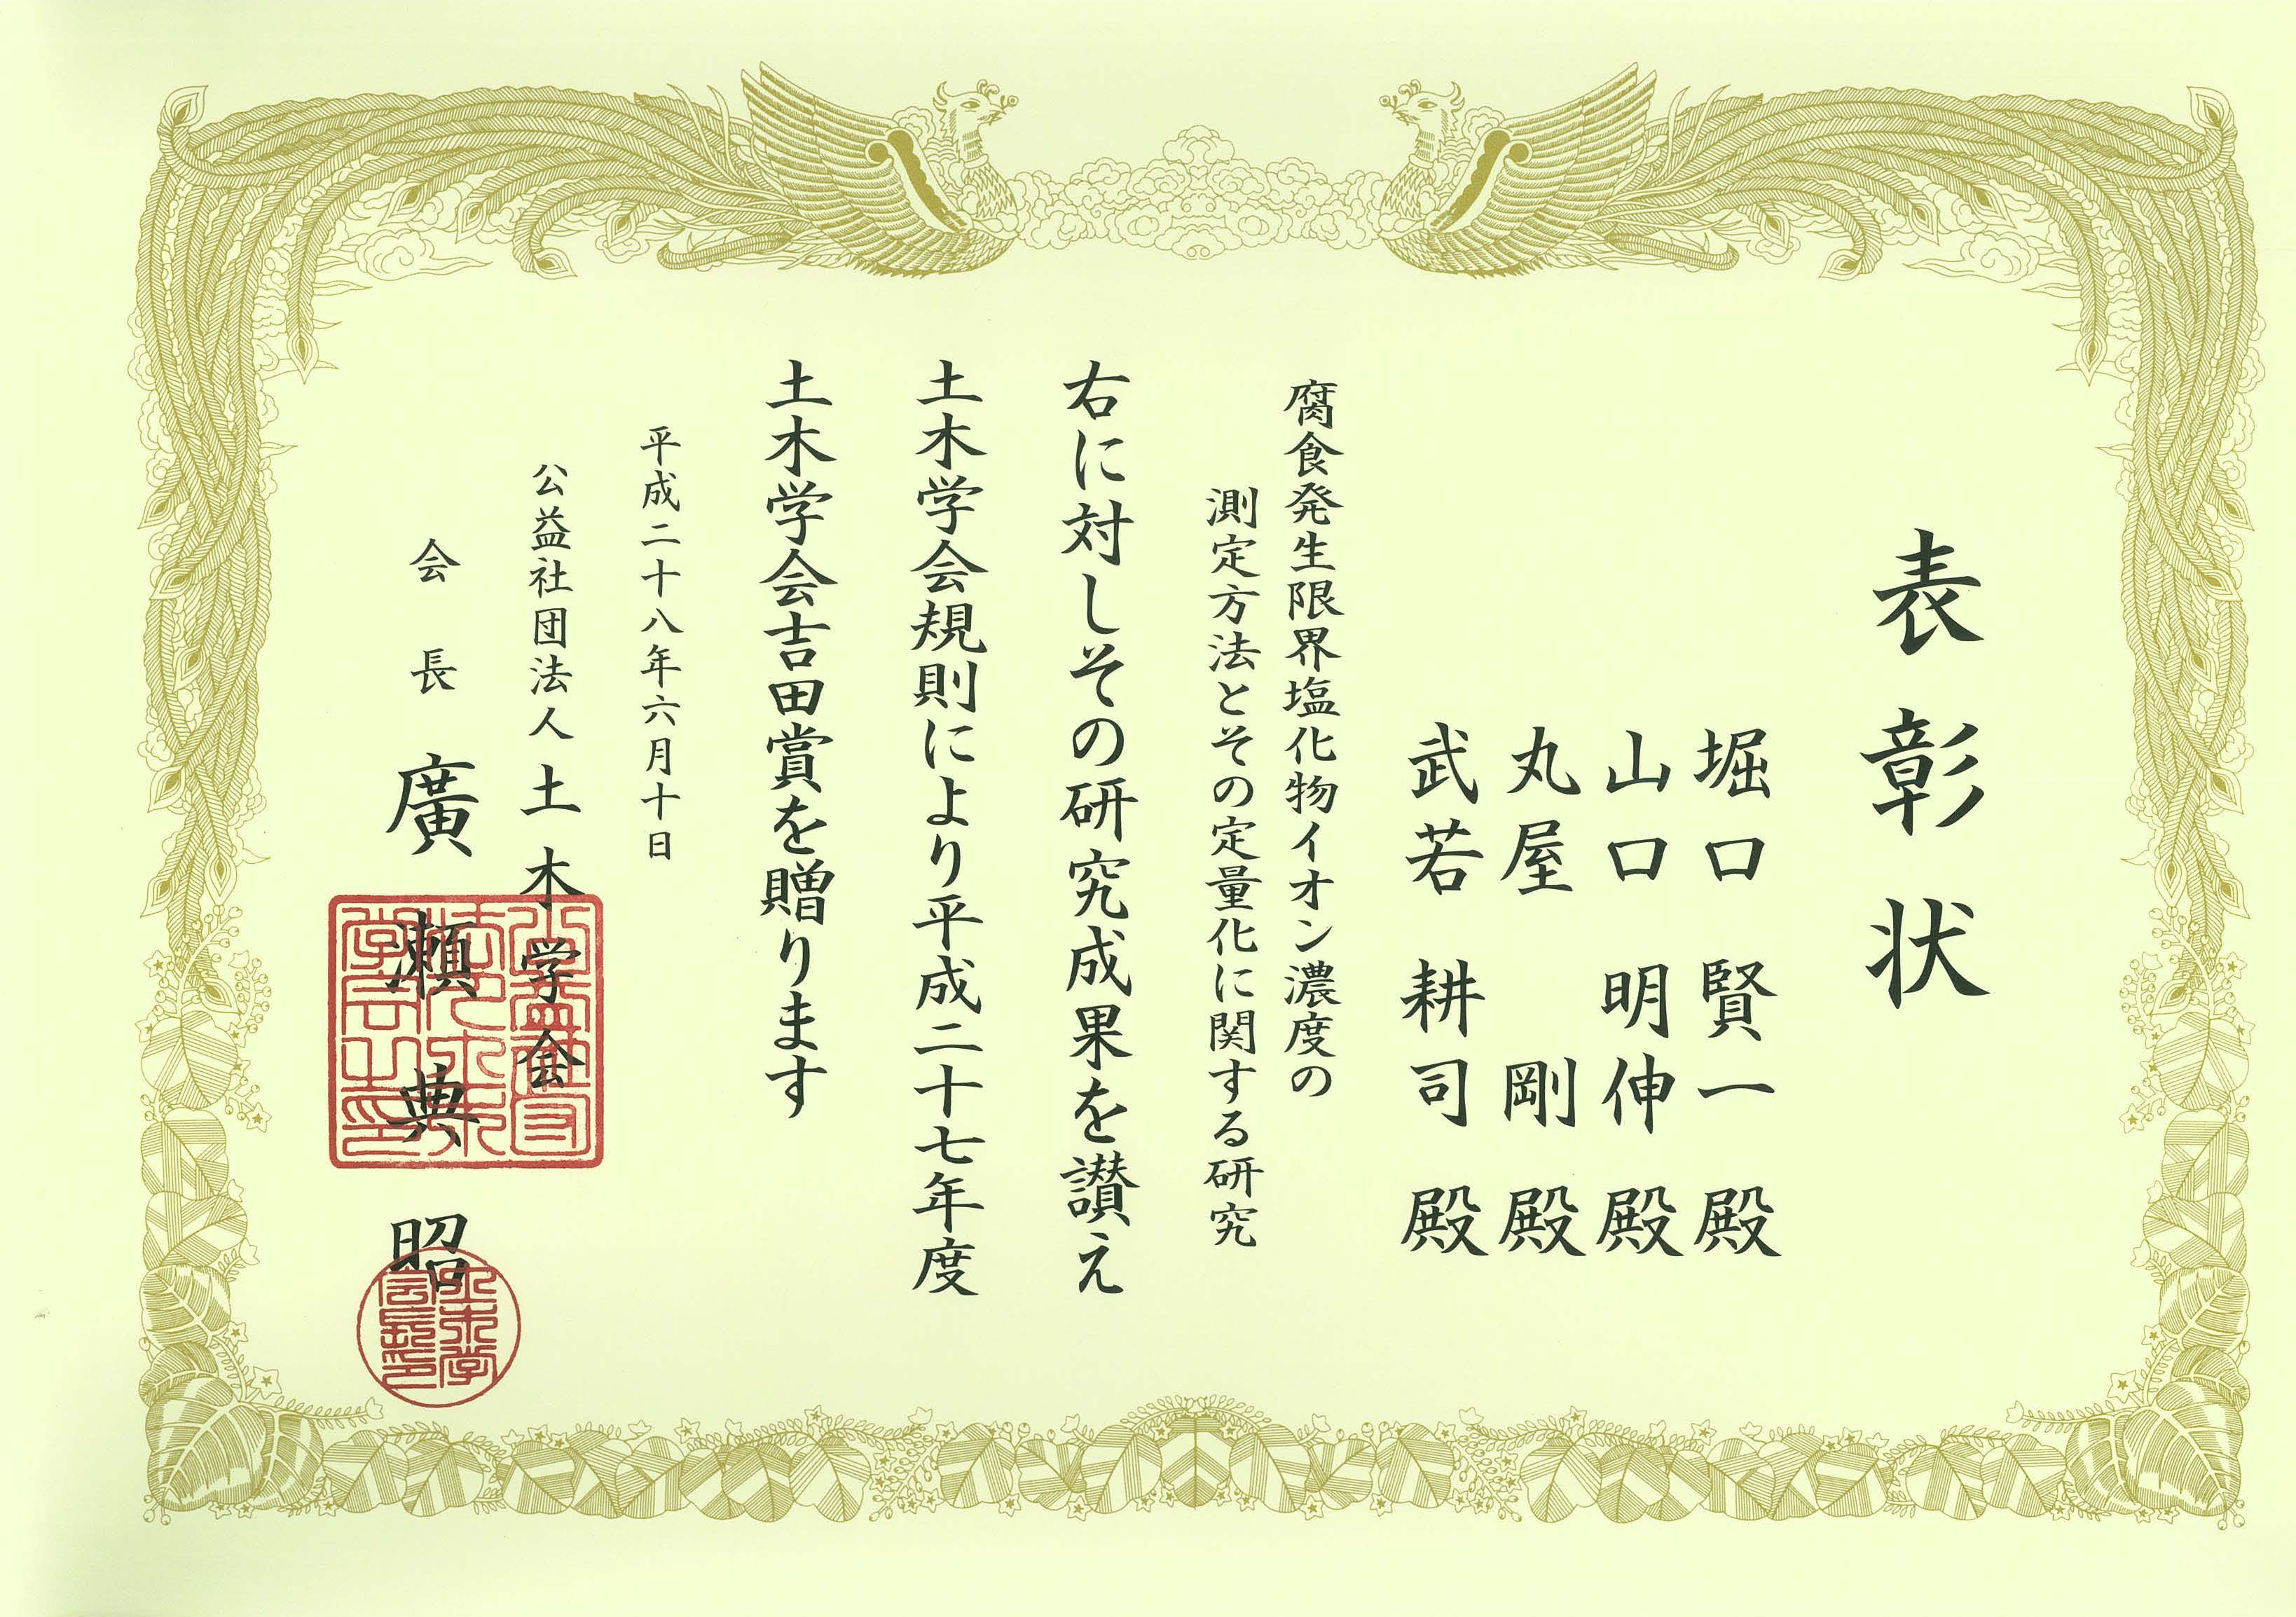 表彰状
堀口賢一殿
山口明伸殿
丸屋剛殿
武若耕司殿
腐食発生限界塩化物イオン濃度の
測定方法とその定量化に関する研究
右に対しその研究成果を讃え
土木学会規則により平成二十七年度
土木学会吉田賞を贈ります
平成二十八年六月十日
公益社団法人土木学会
会長廣瀬典昭
公益社団
法人土木
学会之印
土木学
会長印